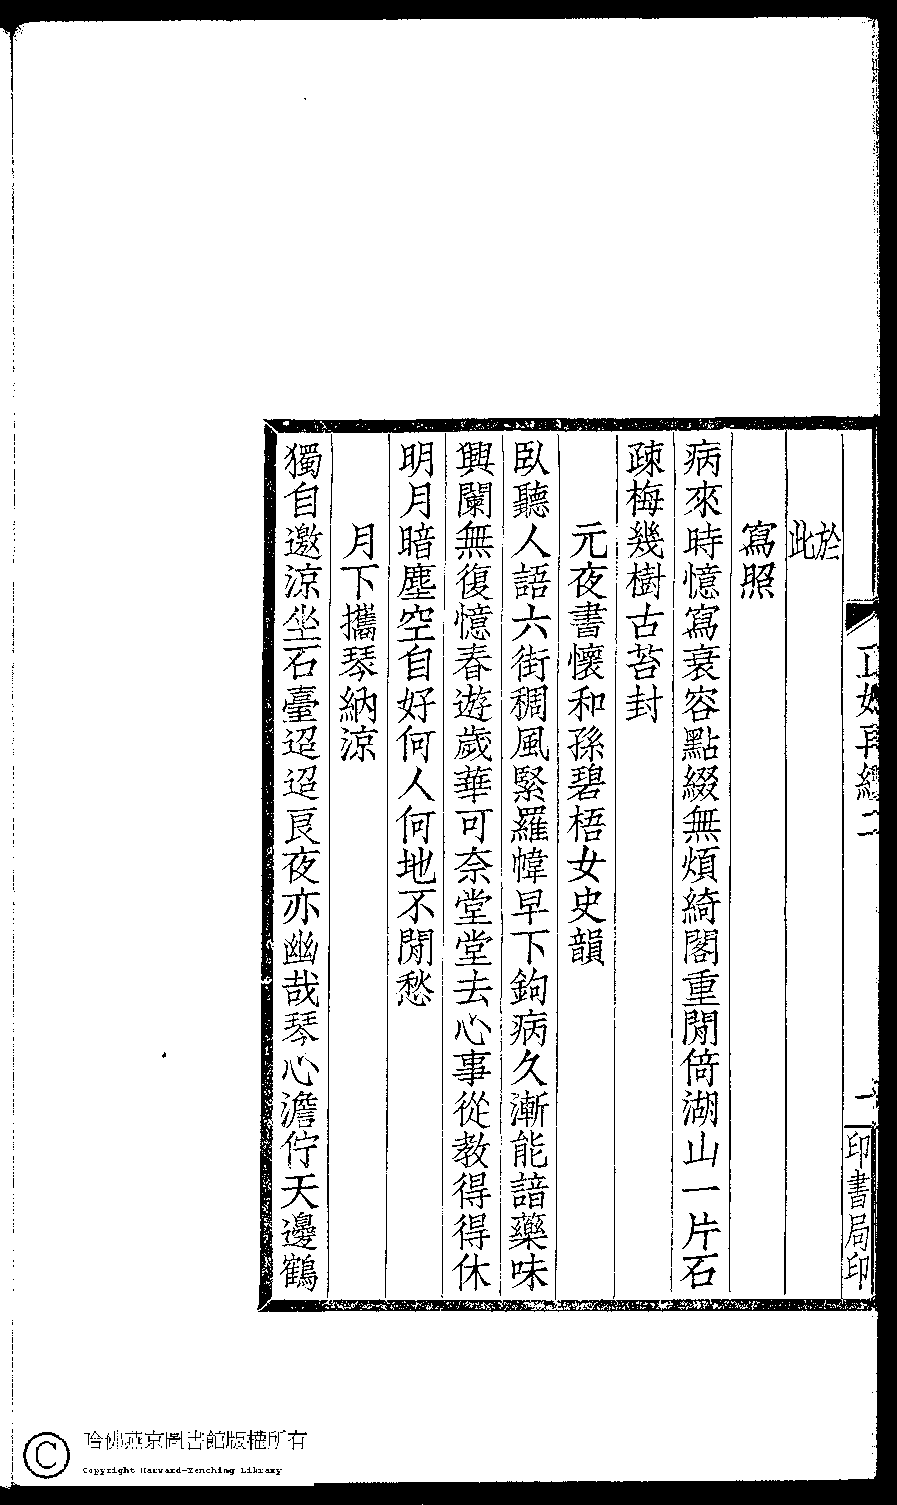 於
此
寫照
病來時憶寫衰容點綴無煩綺閣重閒倚湖山一片石
疎梅幾樹古苔封
元夜書懷和孫碧梧女史韻
臥聽人語六街稠風緊羅幃早下鉤病久漸能諳藥味
興闌無復憶春遊歲華可奈堂堂去心事從教得得休
明月暗塵空自好何人何地不閒愁
月下攜琴納涼
獨自邀涼坐石臺迢迢良夜亦幽哉琴心澹佇天邊鶴
再續二
一
印書局印
哈佛燕京圖書館版權所有
Copyright Harvard-Yenching Library